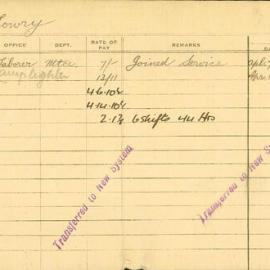 Lowry
OFFICE DEPT. RATE OF PAY REMARKS
Laborer Mtce. 7/- Joined Service
Lamplighter 12/11
4.6.10½
4.14.10½
2.17½ 6 shifts 44 Hrs
Transferred to New System
Transferred to New S